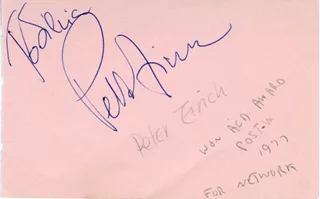 To Silvia
Peter Finch
Peter Finch
WON ACA AWARD
POST-in
1977
FOR NETWORK